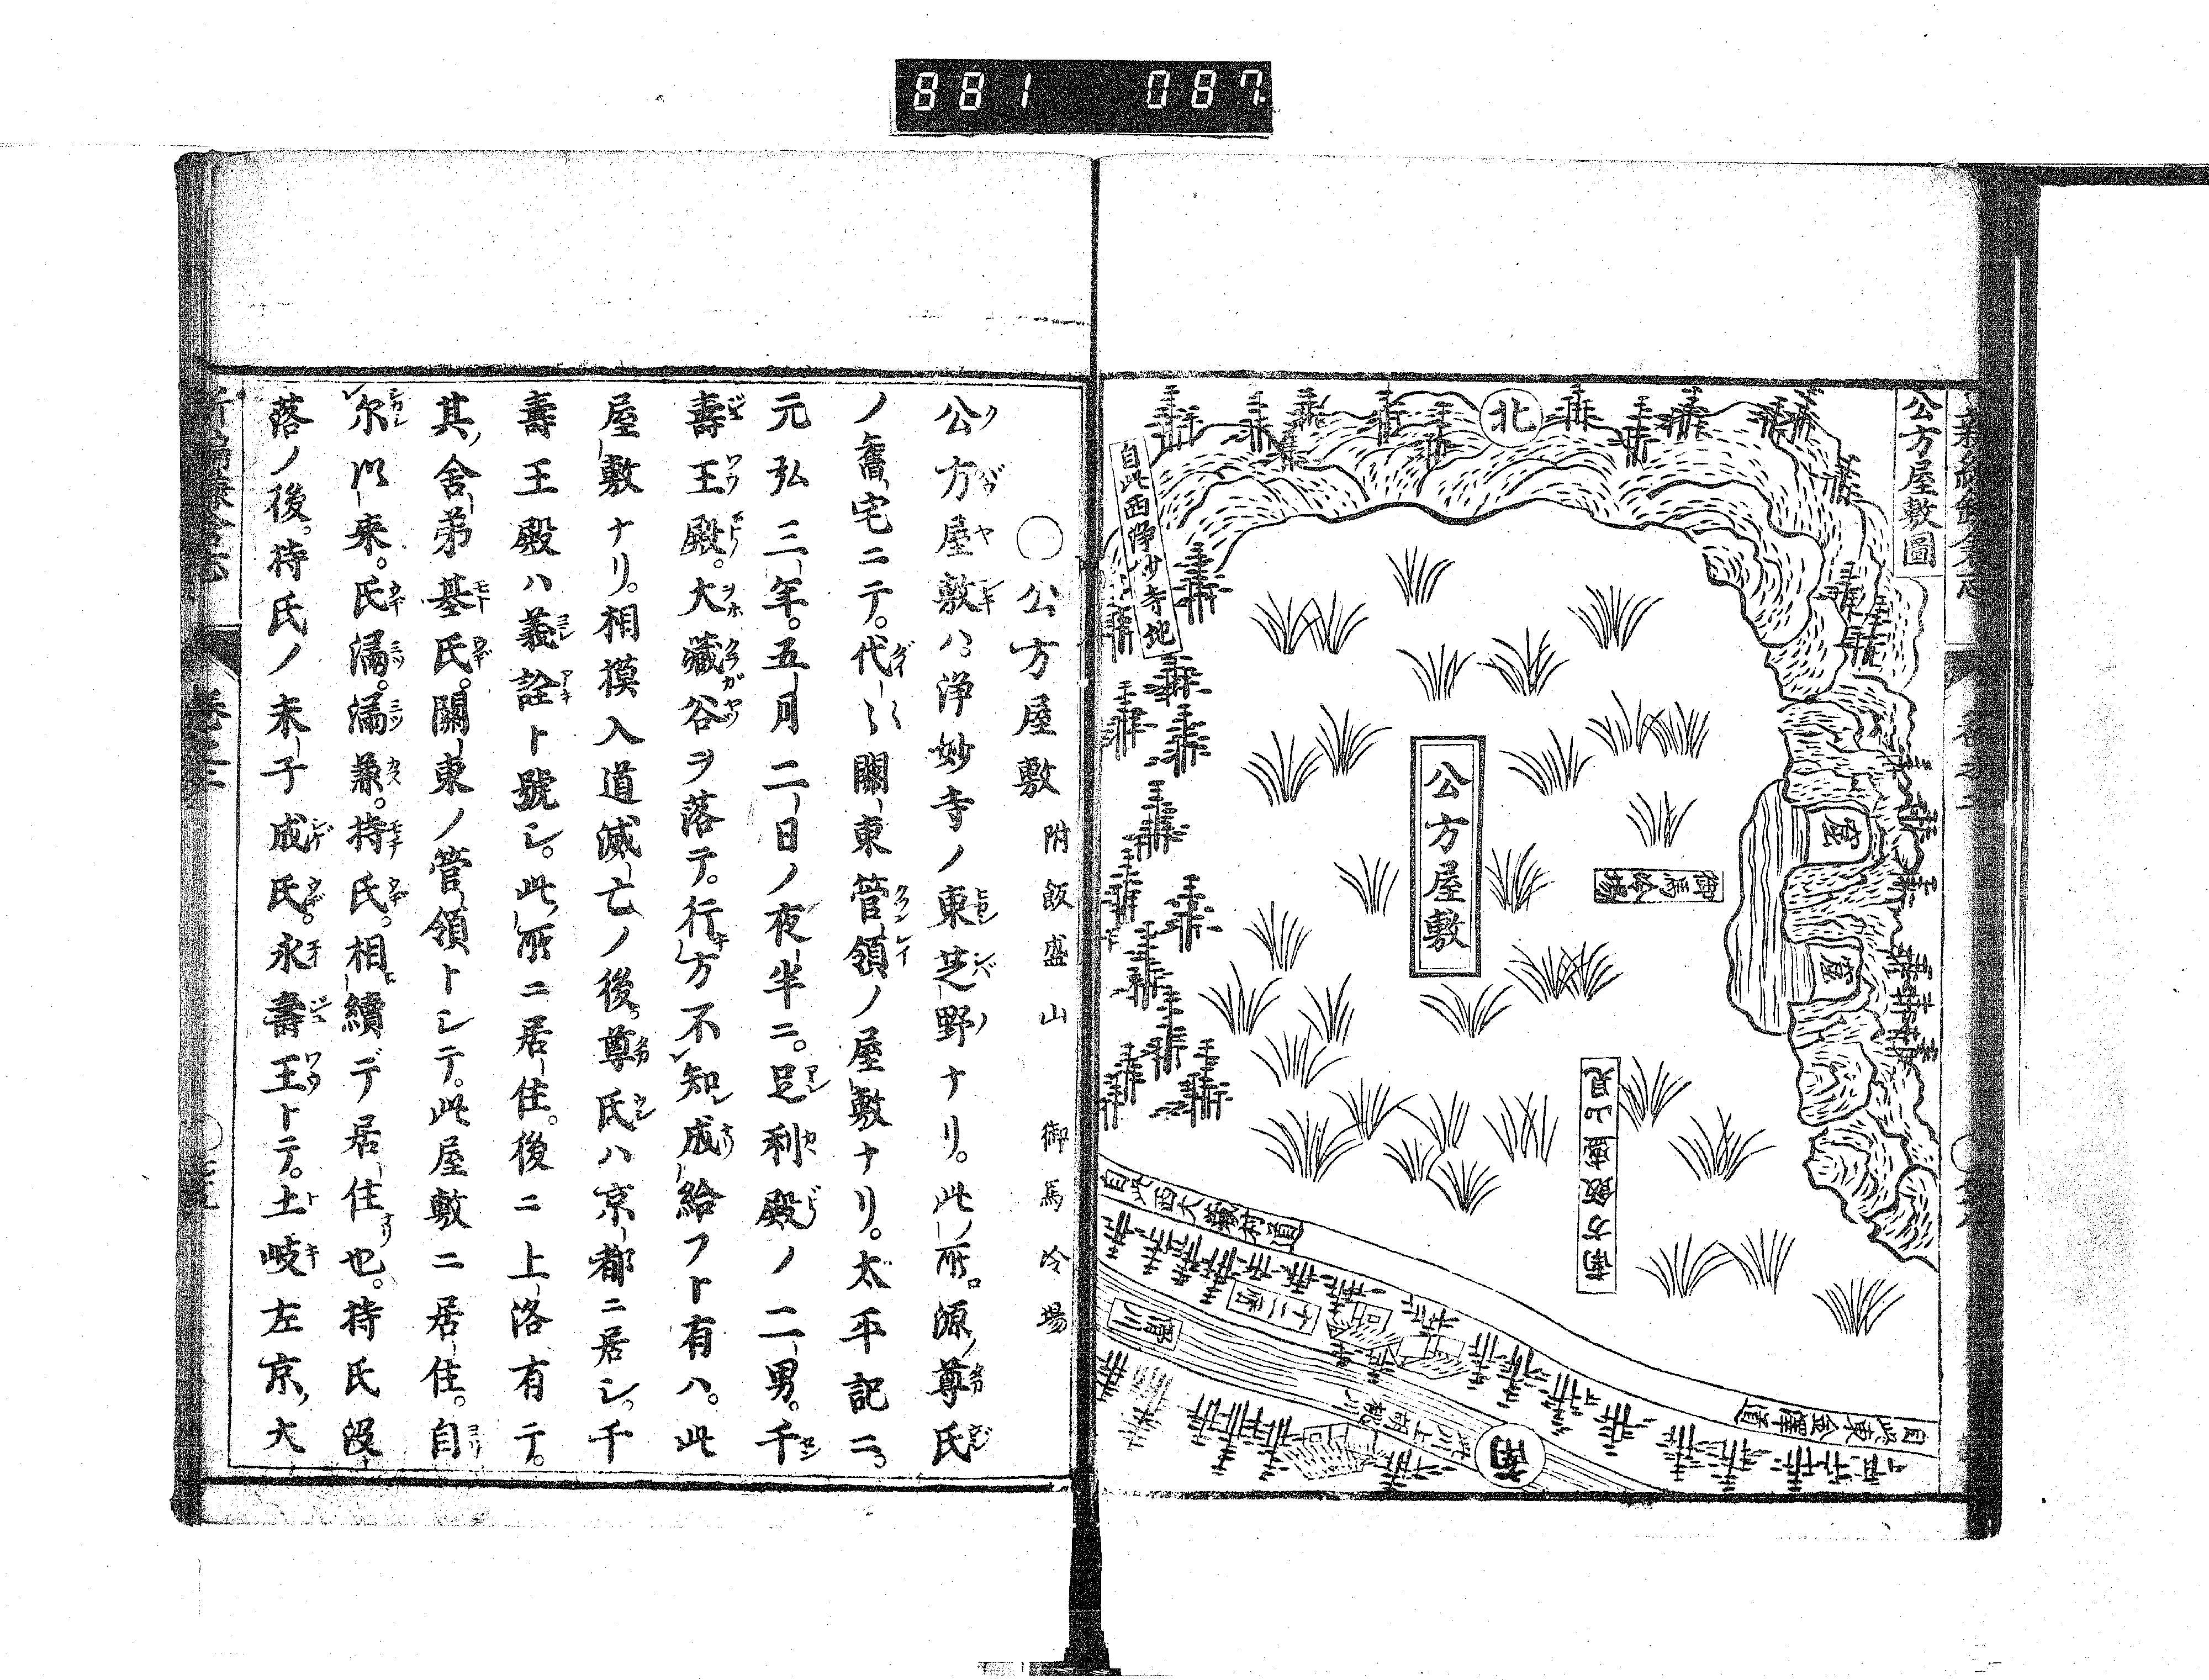 881 087
公方屋敷圖
北
自此西淨妙寺地
公方屋敷
御馬冷場
窟
窟
南方飯盛山見
自此西大藏村道
十二所
滑川
自此東金澤道
南
○公方屋敷 附飯盛山 御馬冷場
公方屋敷ハ淨妙寺ノ東芝野ナリ。此所。源ノ尊氏
ノ舊宅ニテ。代〻關東管領ノ屋敷ナリ。太平記ニ。
元弘三年。五月二日ノ夜半ニ。足利殿ノ二男。千
壽王殿。大藏谷ヲ落テ。行方不知成給フト有ハ。此
屋敷ナリ。相摸入道滅亡ノ後。尊氏ハ京都ニ居シ。千
壽王殿ハ義詮ト號シ。此所ニ居住。後ニ上洛有テ。
其ノ舍弟基氏。關東ノ管領トシテ。此屋敷ニ居住。自
尔以来。氏滿。滿兼。持氏。相續デ居住也。持氏沒
落ノ後。持氏ノ末子成氏。永壽王トテ。土岐左京ノ大